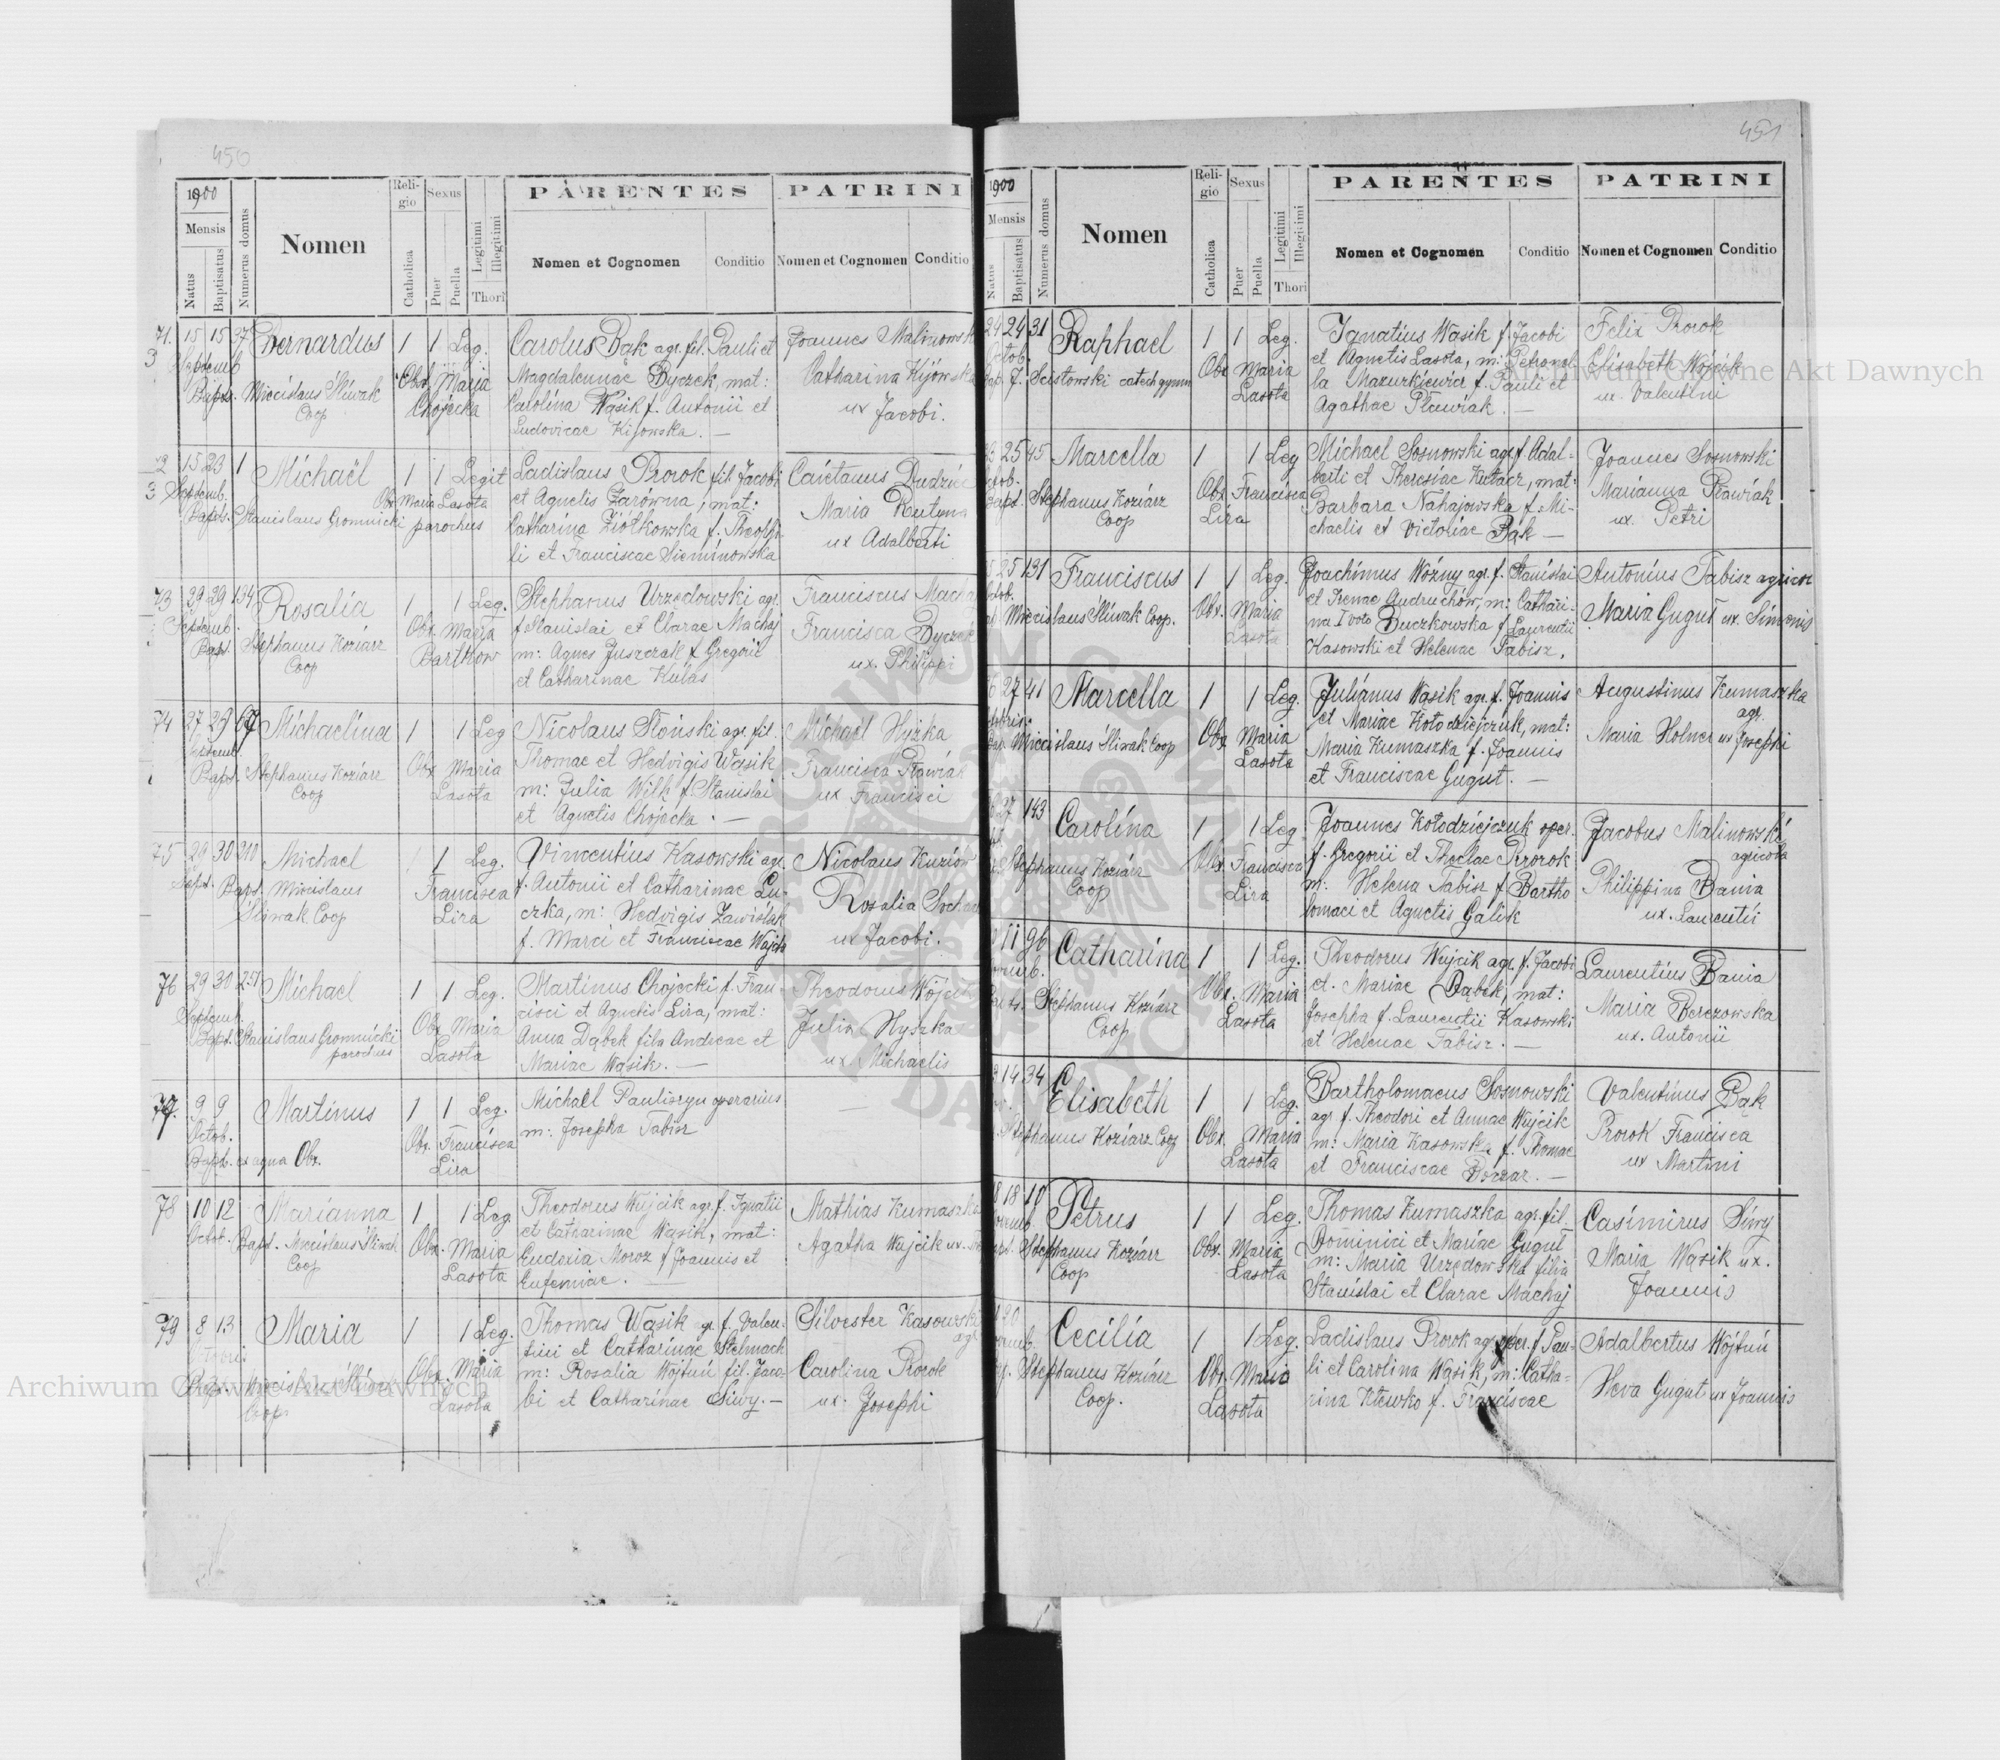 450
1900
Mensis
Natus
Baptisatus
Numerus domus
Nomen
Religio
Catholica
Sexus
Puer
Puella
Legitimi
Illegitimi
Thori
PARENTES
Nomen et Cognomen
Conditio
PATRINI
Nomen et Cognomen
Conditio
71. 15 15 37 Bernardus 1 1 Leg.
Septemb
Bapt. Miecislaus Śliwak
Coop
Obst. Maria
Chojecka
Carolus Bąk agr. fil. Pauli et
Magdalennae Byczek, mat:
Carolina Wąsik f. Antonii et
Ludovicae Kijowska. —
Joannes Malinowsk
Catharina Kijowska
ux Jacobi.
72 15 23 1 Michaël 1 1 Legit
Septemb.
Bapt. Stanislaus Gromnicki parochus
Obs. Maria Lasota
Ladislaus Prorok fil. Jacobi
et Agnetis Żarówna, mat:
Catharina Ziółkowska f. Theophi-
li et Franciscae Sieminowska
Caietanus Dudzic
Maria Rutyna
ux Adalberti
73 29 29 134 Rosalia 1 1 Leg.
Septemb.
Bapt. Stephanus Koziarz
Coop
Obs. Maria
Bartkow
Stephanus Urzędowski agr.
f. Stanislai et Clarae Machaj
m: Agnes Juszczak f. Gregorii
et Catharinae Kulas
Franciscus Machaj
Francisca Byczek
ux. Philippi
74 27 29 67 Michaelina 1 1 Leg
Septemb.
Bapt. Stephanus Koziarz
Coop
Obs. Maria
Lasota
Nicolaus Słoński agr. fil.
Thomae et Hedvigis Wąsik
m: Julia Wilk f. Stanislai
et Agnetis Chojecka. —
Michaël Hyżka
Francisca Pławiak
ux Francisci
75 29 30 210 Michael 1 1 Leg.
Sept. Bapt. Miecislaus
Śliwak Coop
Francisca
Lira
Vincentius Kasowski agr.
f. Antonii et Catharinae Lu-
czka, m: Hedvigis Zawiślak
f. Marci et Franciscae Wajda
Nicolaus Kuziów
Rosalia Sochac
ux Jacobi.
76 29 30 251 Michael 1 1 Leg.
Septemb.
Bapt. Stanislaus Gromnicki
parochus
Obs. Maria
Lasota
Martinus Chojecki f. Fran-
cisci et Agnetis Lira, mat:
Anna Dąbek filia Andreae et
Mariae Wąsik. —
Theodorus Wójcik
Julia Hyszka
ux Michaelis
77. 9 9 Martinus 1 1 Leg.
Octob.
Bapt. ex aqua Obs.
Obs. Francisca
Lira
Michaël Pauliszyn operarius
m: Josepha Tabisz
78 10 12 Marianna 1 1 Leg.
Octob. Bapt. Miecislaus Śliwak
Coop
Obs. Maria
Lasota
Theodorus Wujcik agr. f. Ignatii
et Catharinae Wąsik, mat:
Eudoxia Moroz f. Joannis et
Eufemiae. —
Mathias Kumaszka
Agatha Wujcik ux.
79 8 13 Maria 1 1 Leg.
Octobris
Bapt. Miecislaus Śliwak
Coop
Obs. Maria
Lasota
Thomas Wąsik agr. f. Valen-
tini et Catharinae Stelmach
m: Rosalia Wójtuń fil. Jaco-
bi et Catharinae Siwy. —
Silvester Kasowski
agr.
Carolina Prorok
ux. Josephi
451
1900
Mensis
Natus
Baptisatus
Numerus domus
Nomen
Religio
Catholica
Sexus
Puer
Puella
Legitimi
Illegitimi
Thori
PARENTES
Nomen et Cognomen
Conditio
PATRINI
Nomen et Cognomen
Conditio
24 24 31 Raphael 1 1 Leg.
Octob.
Bap. J. Scisłowski catech gymn
Obs Maria
Lasota
Ignatius Wąsik f. Jacobi
et Agnetis Lasota, m: Petronel-
la Mazurkiewicz f. Pauli et
Agathae Pławiak. —
Felix Prorok
Elisabeth Wójcik
ux. Valentini
25 45 Marcella 1 1 Leg
Octob.
Bapt. Stephanus Koziarz
Coop
Obs Francisca
Lira
Michael Sosnowski agr. f. Adal-
berti et Theresiae Kutacz, mat:
Barbara Nahajowska f. Mi-
chaelis et Victoriae Bąk —
Joannes Sosnowski
Marianna Pławiak
ux. Petri
25 131 Franciscus 1 1 Leg.
Octob.
Miecislaus Śliwak Coop.
Obs. Maria
Lasota
Joachimus Woźny agr. f. Stanislai
et Irenae Andruchów, m: Cathari-
na I voto Buczkowska f. Laurentii
Kasowski et Helenae Tabisz.
Antonius Tabisz agricol
Maria Gugut ux. Simonis
27 41 Marcella 1 1 Leg.
Octobris.
Bap. Miecislaus Śliwak Coop
Obs Maria
Lasota
Julianus Wąsik agr. f. Joannis
et Mariae Kołodziejczuk, mat:
Maria Kumaszka f. Joannis
et Franciscae Gugut. —
Augustinus Kumaszka
agr.
Maria Holner ux Josephi
27 143 Carolina 1 1 Leg
Stephanus Koziarz
Coop
Obs. Francisca
Lira
Joannes Kołodziejczuk oper.
f. Gregorii et Theclae Prorok
m: Helena Tabisz f. Bartho
lomaei et Agnetis Galik
Jacobus Malinowski
agricola
Philippina Bania
ux. Laurentii
11 96 Catharina 1 1 Leg.
Novemb.
Stephanus Koziarz
Coop
Obs. Maria
Lasota
Theodorus Wujcik agr. f. Jacobi
et. Mariae Dąbek, mat:
Josepha f. Laurentii Kasowski
et Helenae Tabisz. —
Laurentius Bania
Maria Berezowska
ux. Antonii
14 34 Elisabeth 1 1 Leg.
Stephanus Koziarz Coop
Obs. Maria
Lasota
Bartholomaeus Sosnowski
agr. f. Theodori et Annae Wujcik
m: Maria Kasowska f. Thomae
et Franciscae Boczar. —
Valentinus Bąk
Prorok Francisca
ux Martini
18 18 10 Petrus 1 1 Leg.
Novemb
Stephanus Koziarz
Coop
Obs. Maria
Lasota
Thomas Kumaszka agr. fil.
Dominici et Mariae Gugut
m: Maria Urzędowska filia
Stanislai et Clarae Machaj
Casimirus Siwy
Maria Wąsik ux.
Joannis
20 Cecilia 1 1 Leg.
Novemb.
Stephanus Koziarz
Coop.
Obs. Maria
Lasota
Ladislaus Prorok agr. oper. f. Pau-
li et Carolina Wąsik, m: Catha-
rina Klewko f. Franciscae
Adalbertus Wójtuń
Heva Gugut ux Joannis
Archiwum Główne Akt Dawnych
Archiwum Główne Akt Dawnych